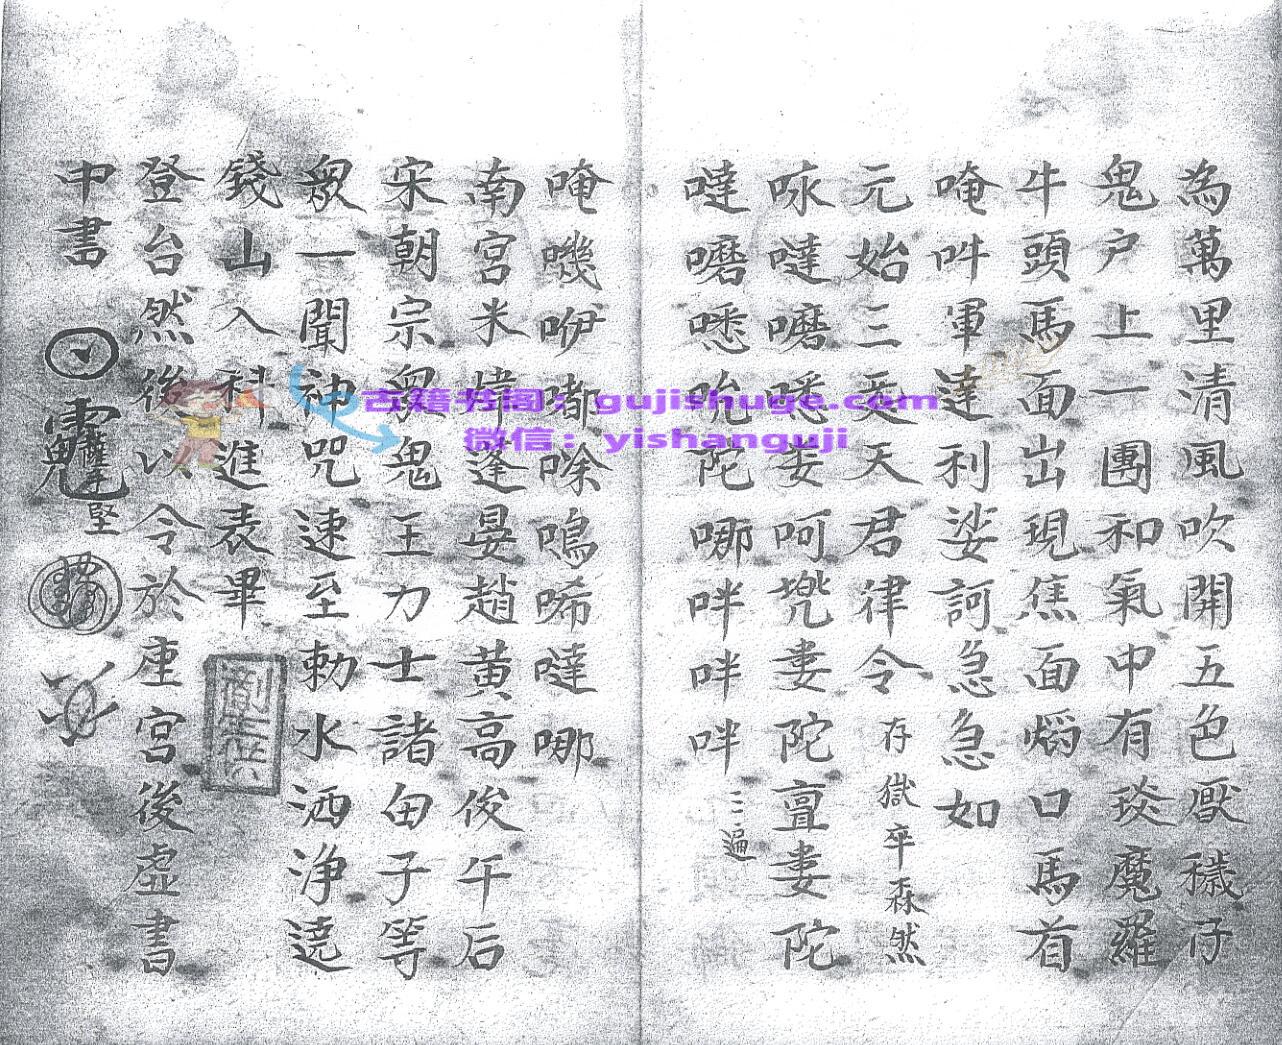 為萬里清風吹開五色厭穢存
鬼户上一團和氣中有琰魔羅
牛頭馬面出現焦面燄口馬首
唵吽軍達利娑訶急急如
元始三炁天君律令 存獄卒森然
咏噠嚤㗭娑呵㙠婁陀亶婁陀
噠嚤㗭吮陀哪吽吽吽 三遍
唵嘰咿嘟唋嗚唏噠哪
南宮米偉逢晏趙黄高俊午后
宋朝宗眾鬼王力士諸甶子等
眾一聞神咒速至勅水洒淨遶
錢山入科進表畢
登台然後以令於座宮後虛書
中書
堅
古籍书阁：gujishuge.com
微信：yishanguji